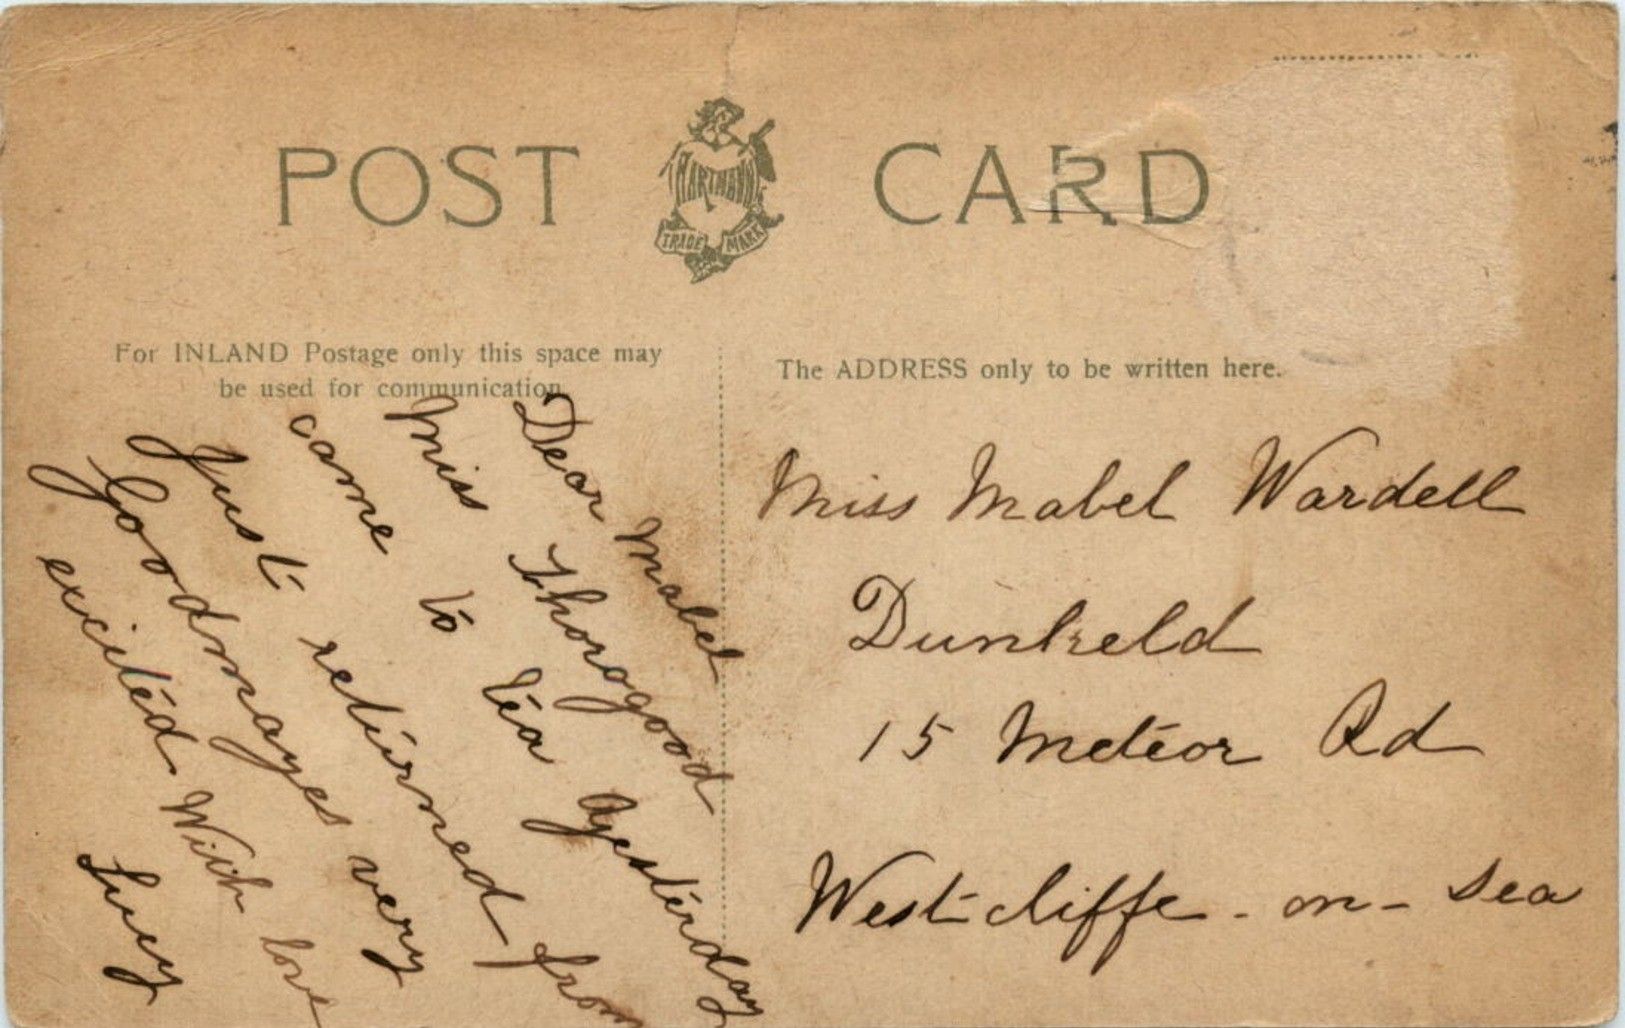 POST CARD
HARTMANN
TRADE MARK
For INLAND Postage only this space may
be used for communication.
The ADDRESS only to be written here.
Dear Mabel
Miss Thorogood
came to tea yesterday
Just returned from
Goodmayes very
excited. With love
Lucy
Miss Mabel Wardell
Dunkeld
15 Meteor Rd
Westcliffe-on-Sea